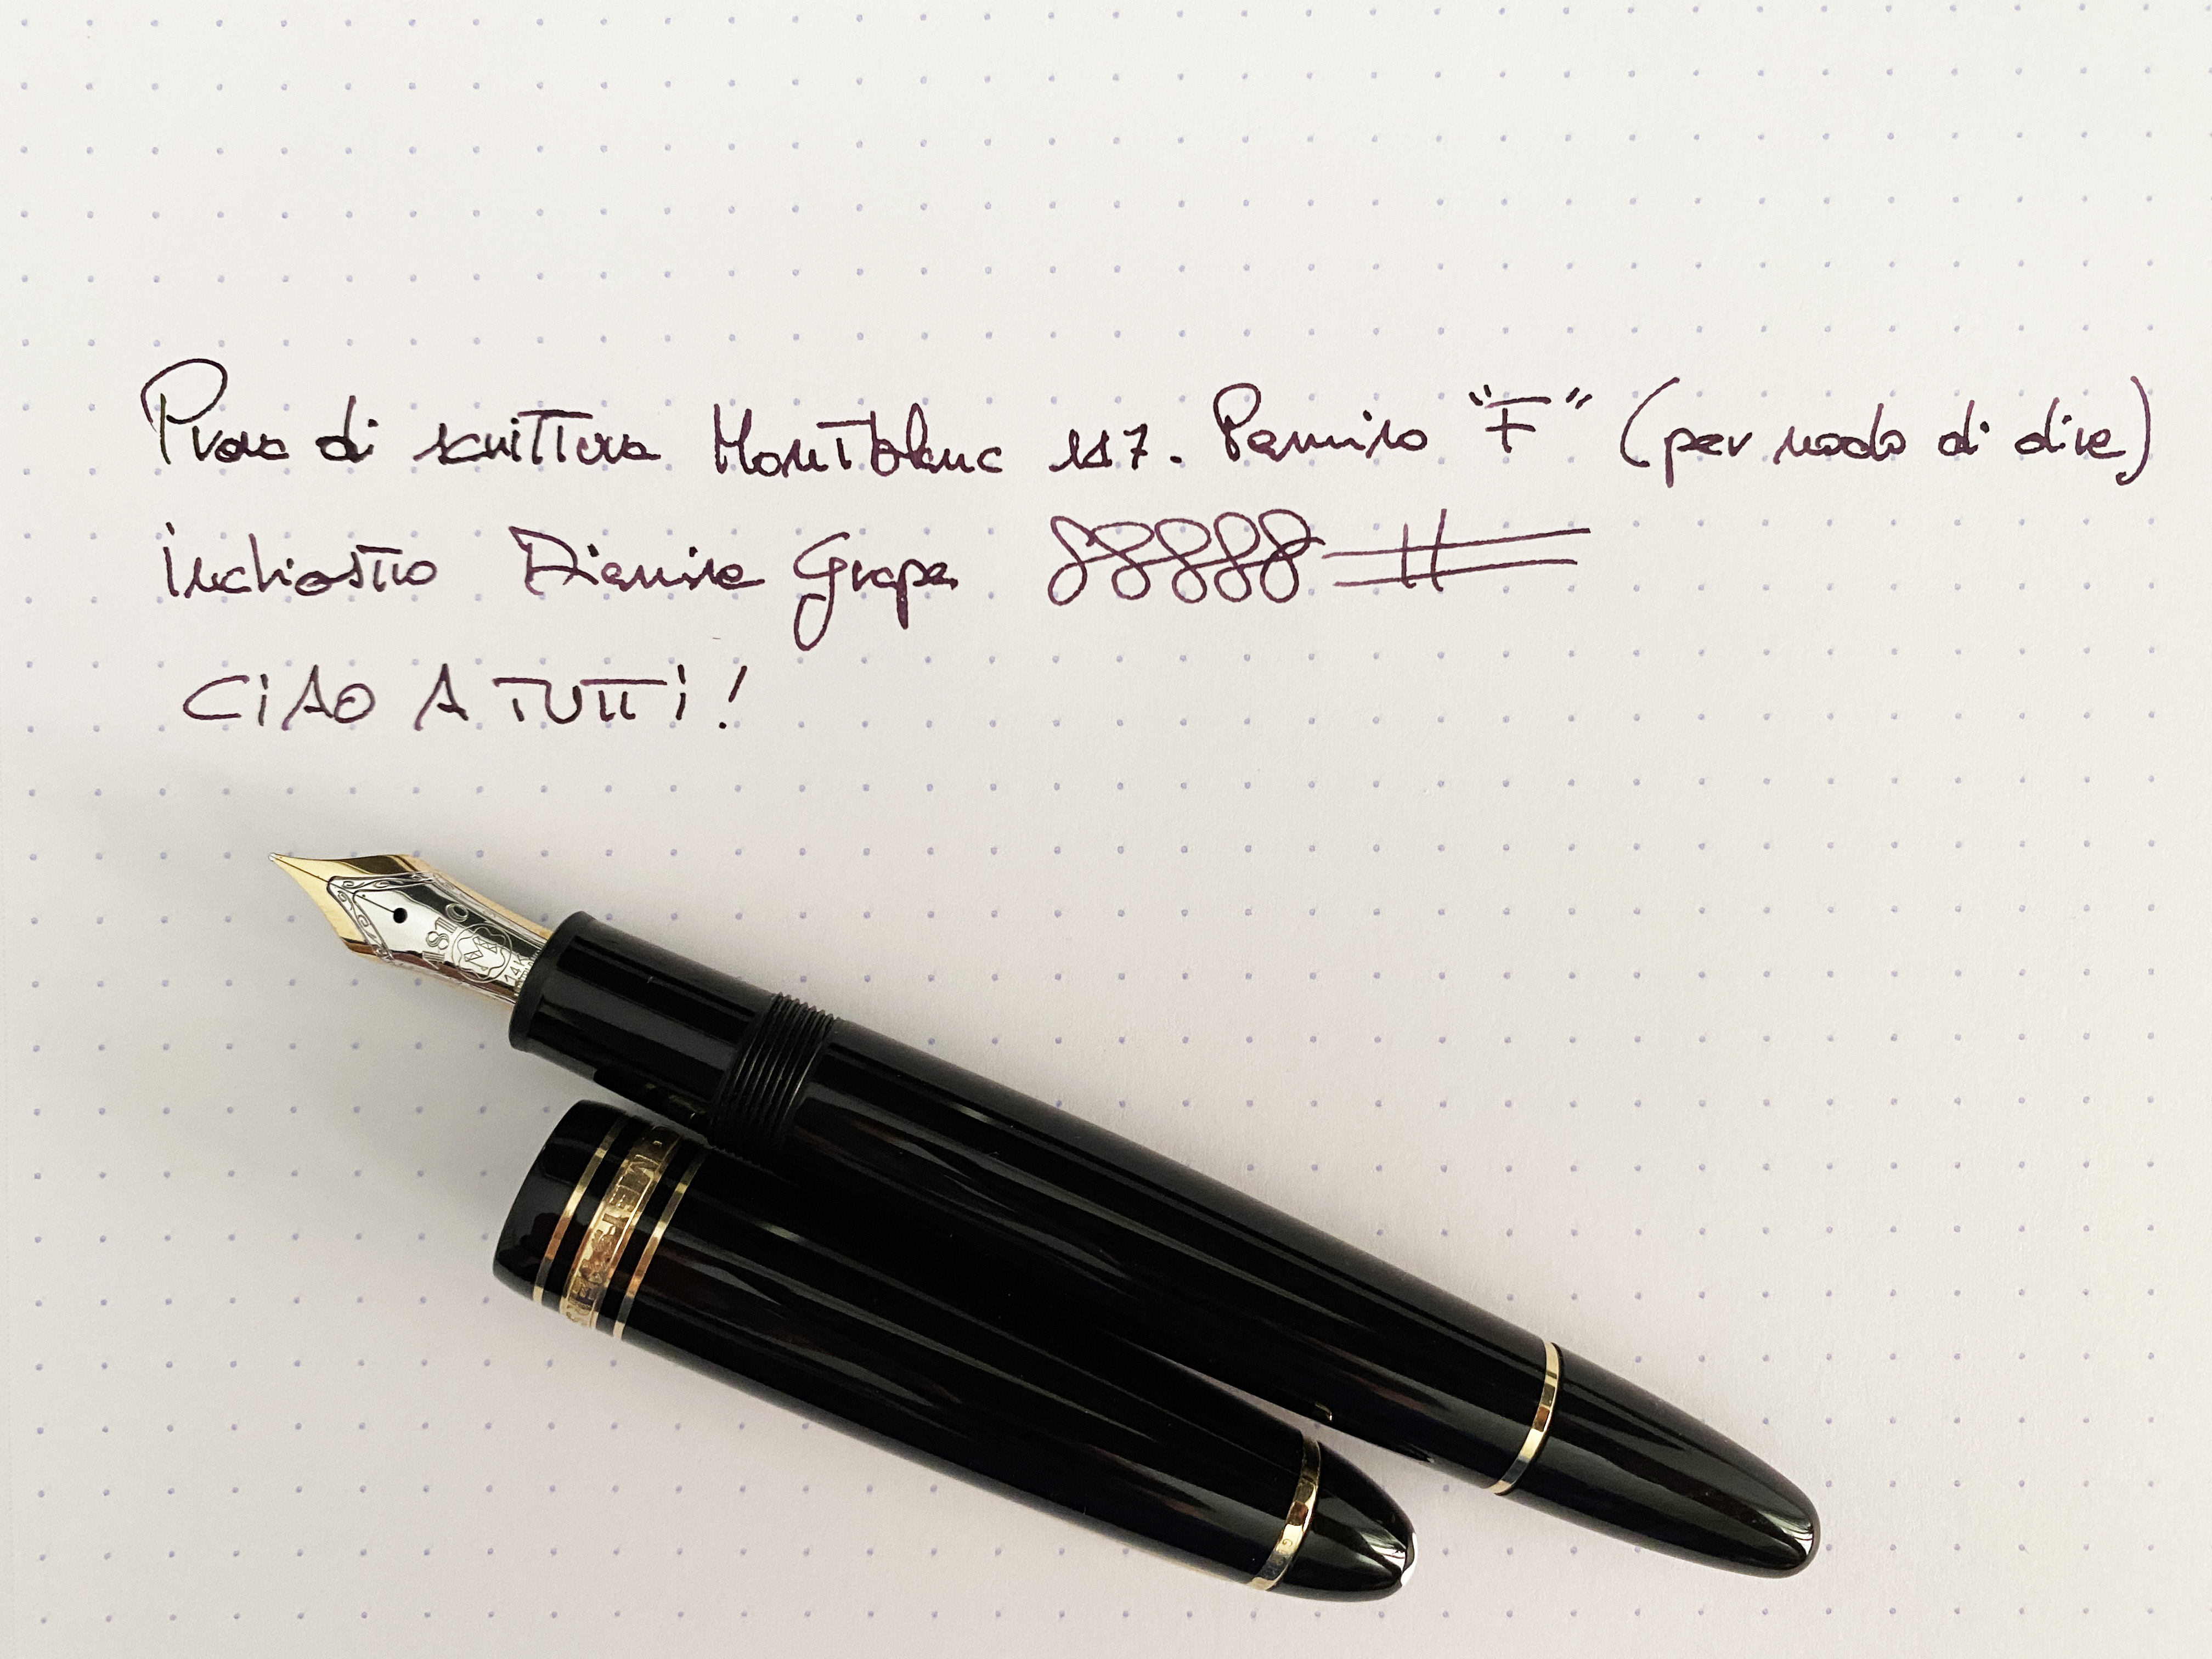 Prova di scrittura Montblanc 117. Pennino "F" (per modo di dire)
Inchiostro Diamine Grape
CIAO A TUTTI!
4810
M
14K
MEISTERSTÜCK